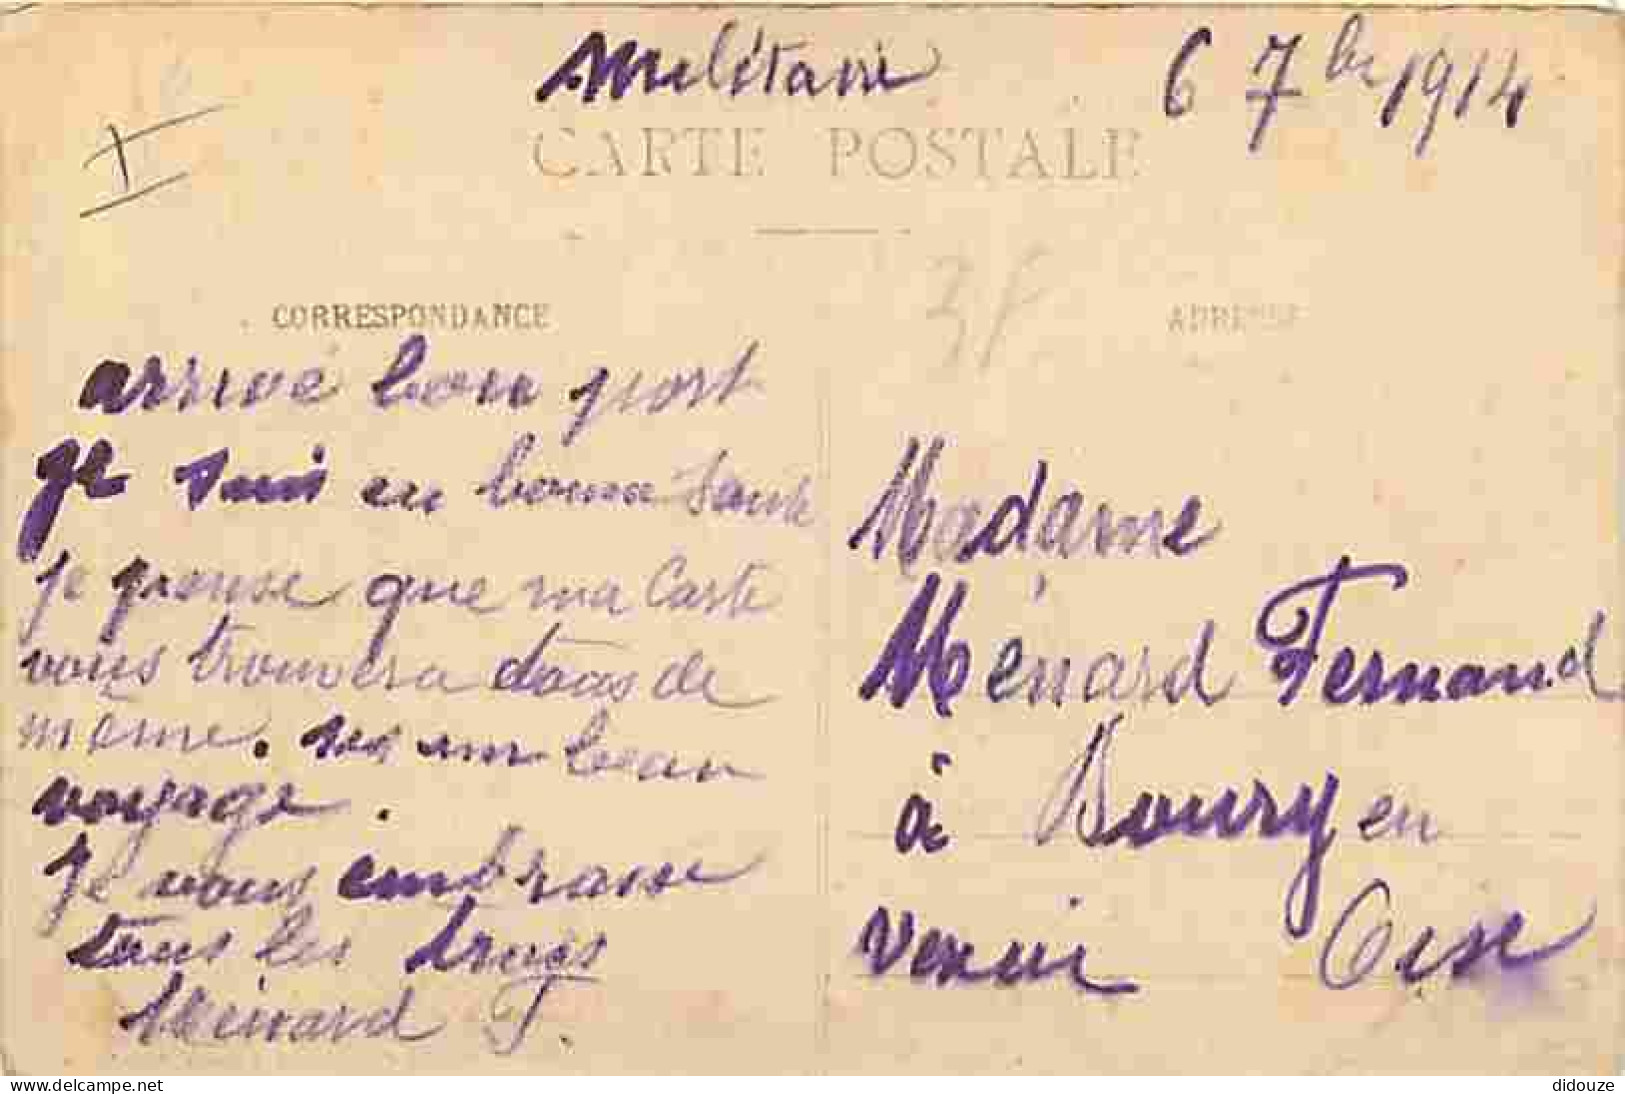 Militaire
6 7bre 1914
CARTE POSTALE
38
CORRESPONDANCE
arrivé bon port
je suis en bonne santé
je pense que ma Carte
vous trouvera tous de
meme. un beau
voyage.
Je vous embrasse
tous les trois
Ménard F.
ADRESSE
Madame
Ménard Fernand
à Boury en
Vexin Oise
www.delcampe.net
didouze